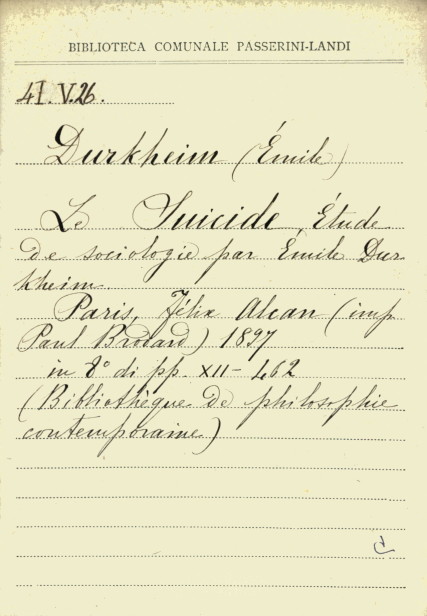 BIBLIOTECA COMUNALE PASSERINI-LANDI
4I.V.26.
Durkheim (Émile)
Le Suicide, Étude
de sociologie par Émile Dur
kheim
Paris, Félix Alcan (imp
Paul Brodard) 1897
in 8° di pp. XII-462
(Bibliothèque de philosophie
contemporaine)